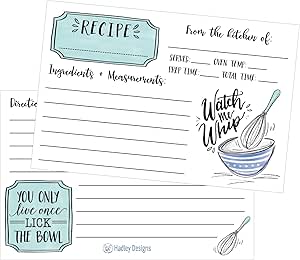 RECIPE
From the kitchen of:
SERVES OVEN TEMP
PREP TIME TOTAL TIME
Ingredients + Measurements:
Watch
Me
Whip
Directi
YOU ONLY
live once
LICK
THE BOWL
Hadley Designs